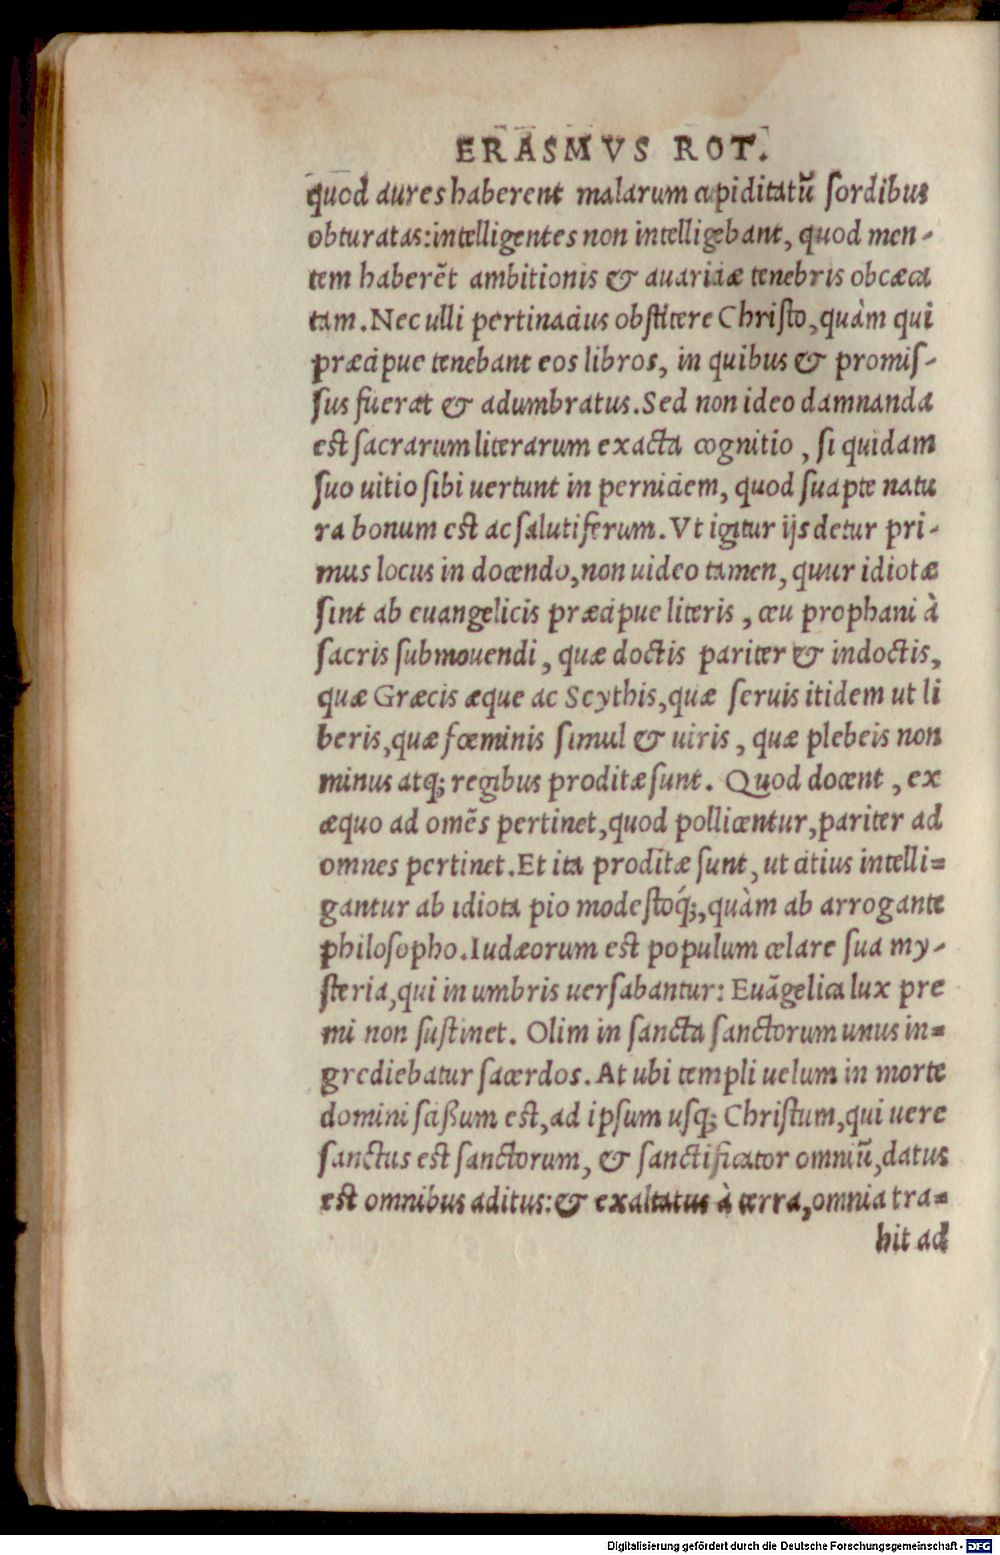 ERASMVS ROT.
quod aures haberent malarum cupiditatū sordibus
obturatas: intelligentes non intelligebant, quod men-
tem haberēt ambitionis & auaritiæ tenebris obcæca
tam. Nec ulli pertinacius obstitere Christo, quàm qui
præcipue tenebant eos libros, in quibus & promis-
sus fuerat & adumbratus. Sed non ideo damnanda
est sacrarum literarum exacta cognitio, si quidam
suo uitio sibi uertunt in perniciem, quod suapte natu
ra bonum est ac salutiferum. Vt igitur ijs detur pri-
mus locus in docendo, non uideo tamen, quur idiotæ
sint ab euangelicis præcipue literis, ceu prophani à
sacris submouendi, quæ doctis pariter & indoctis,
quæ Græcis æque ac Scythis, quæ seruis itidem ut li
beris, quæ fœminis simul & uiris, quæ plebeis non
minus atq; regibus proditæ sunt. Quod docent, ex
æquo ad omēs pertinet, quod pollicentur, pariter ad
omnes pertinet. Et ita proditæ sunt, ut citius intelli=
gantur ab idiota pio modestoq́;, quàm ab arrogante
philosopho. Iudæorum est populum celare sua my-
steria, qui in umbris uersabantur: Euāgelica lux pre
mi non sustinet. Olim in sancta sanctorum unus in=
grediebatur sacerdos. At ubi templi uelum in morte
domini scißum est, ad ipsum usq; Christum, qui uere
sanctus est sanctorum, & sanctificator omniū, datus
est omnibus aditus: & exaltatus à terra, omnia tra=
hit ad
Digitalisierung gefördert durch die Deutsche Forschungsgemeinschaft - DFG